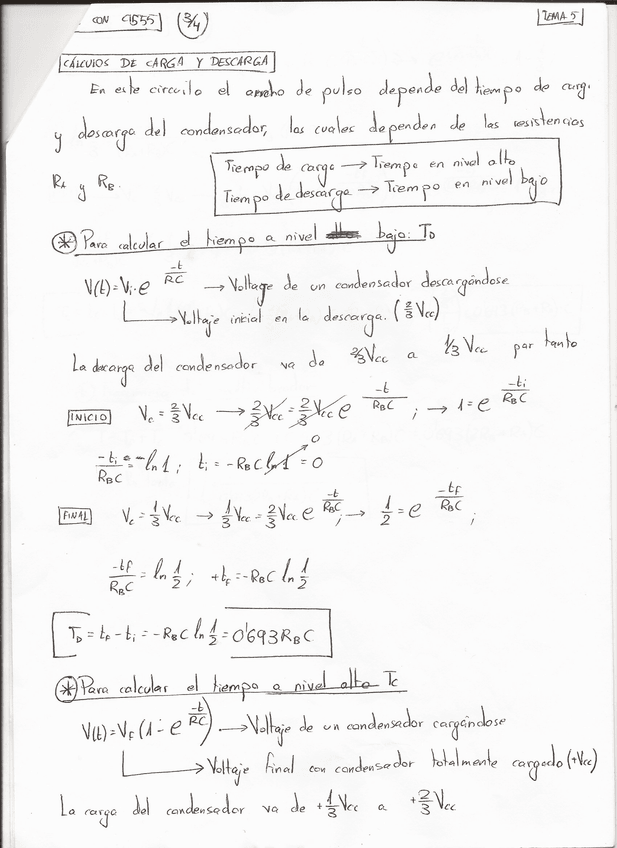 CON 9555 (3/4) TEMA 5
CÁLCULOS DE CARGA Y DESCARGA
En este circuito el ancho de pulso depende del tiempo de carg.
y descarga del condensador, los cuales dependen de las resistencias
RA y RB.
Tiempo de carga → Tiempo en nivel alto
Tiempo de descarga → Tiempo en nivel bajo
* Para calcular el tiempo a nivel bajo: TD
V(t)=Vi·e^(-t/RC) → Voltage de un condensador descargándose
→ Voltaje inicial en la descarga. (2/3 Vcc)
La decarga del condensador va de 2/3Vcc a 1/3 Vcc por tanto
INICIO Vc = 2/3 Vcc → 2/3 Vcc = 2/3 Vcc e^(-t/RBC) ; → 1 = e^(-ti/RBC)
-ti/RBC = ln 1 ; ti = -RBC ln 1 = 0 0
FINAL Vc = 1/3 Vcc → 1/3 Vcc = 2/3 Vcc e^(-t/RBC) ; → 1/2 = e^(-tf/RBC) ;
-tf/RBC = ln 1/2 ; +tF = -RBC ln 1/2
TD = tF - ti = -RBC ln 1/2 = 0'693 RBC
* Para calcular el tiempo a nivel alto Tc
V(t)=VF (1 - e^(-t/RC)) → Voltaje de un condensador cargándose
→ Voltaje final con condensador totalmente cargado (+Vcc)
La carga del condensador va de +1/3 Vcc a +2/3 Vcc